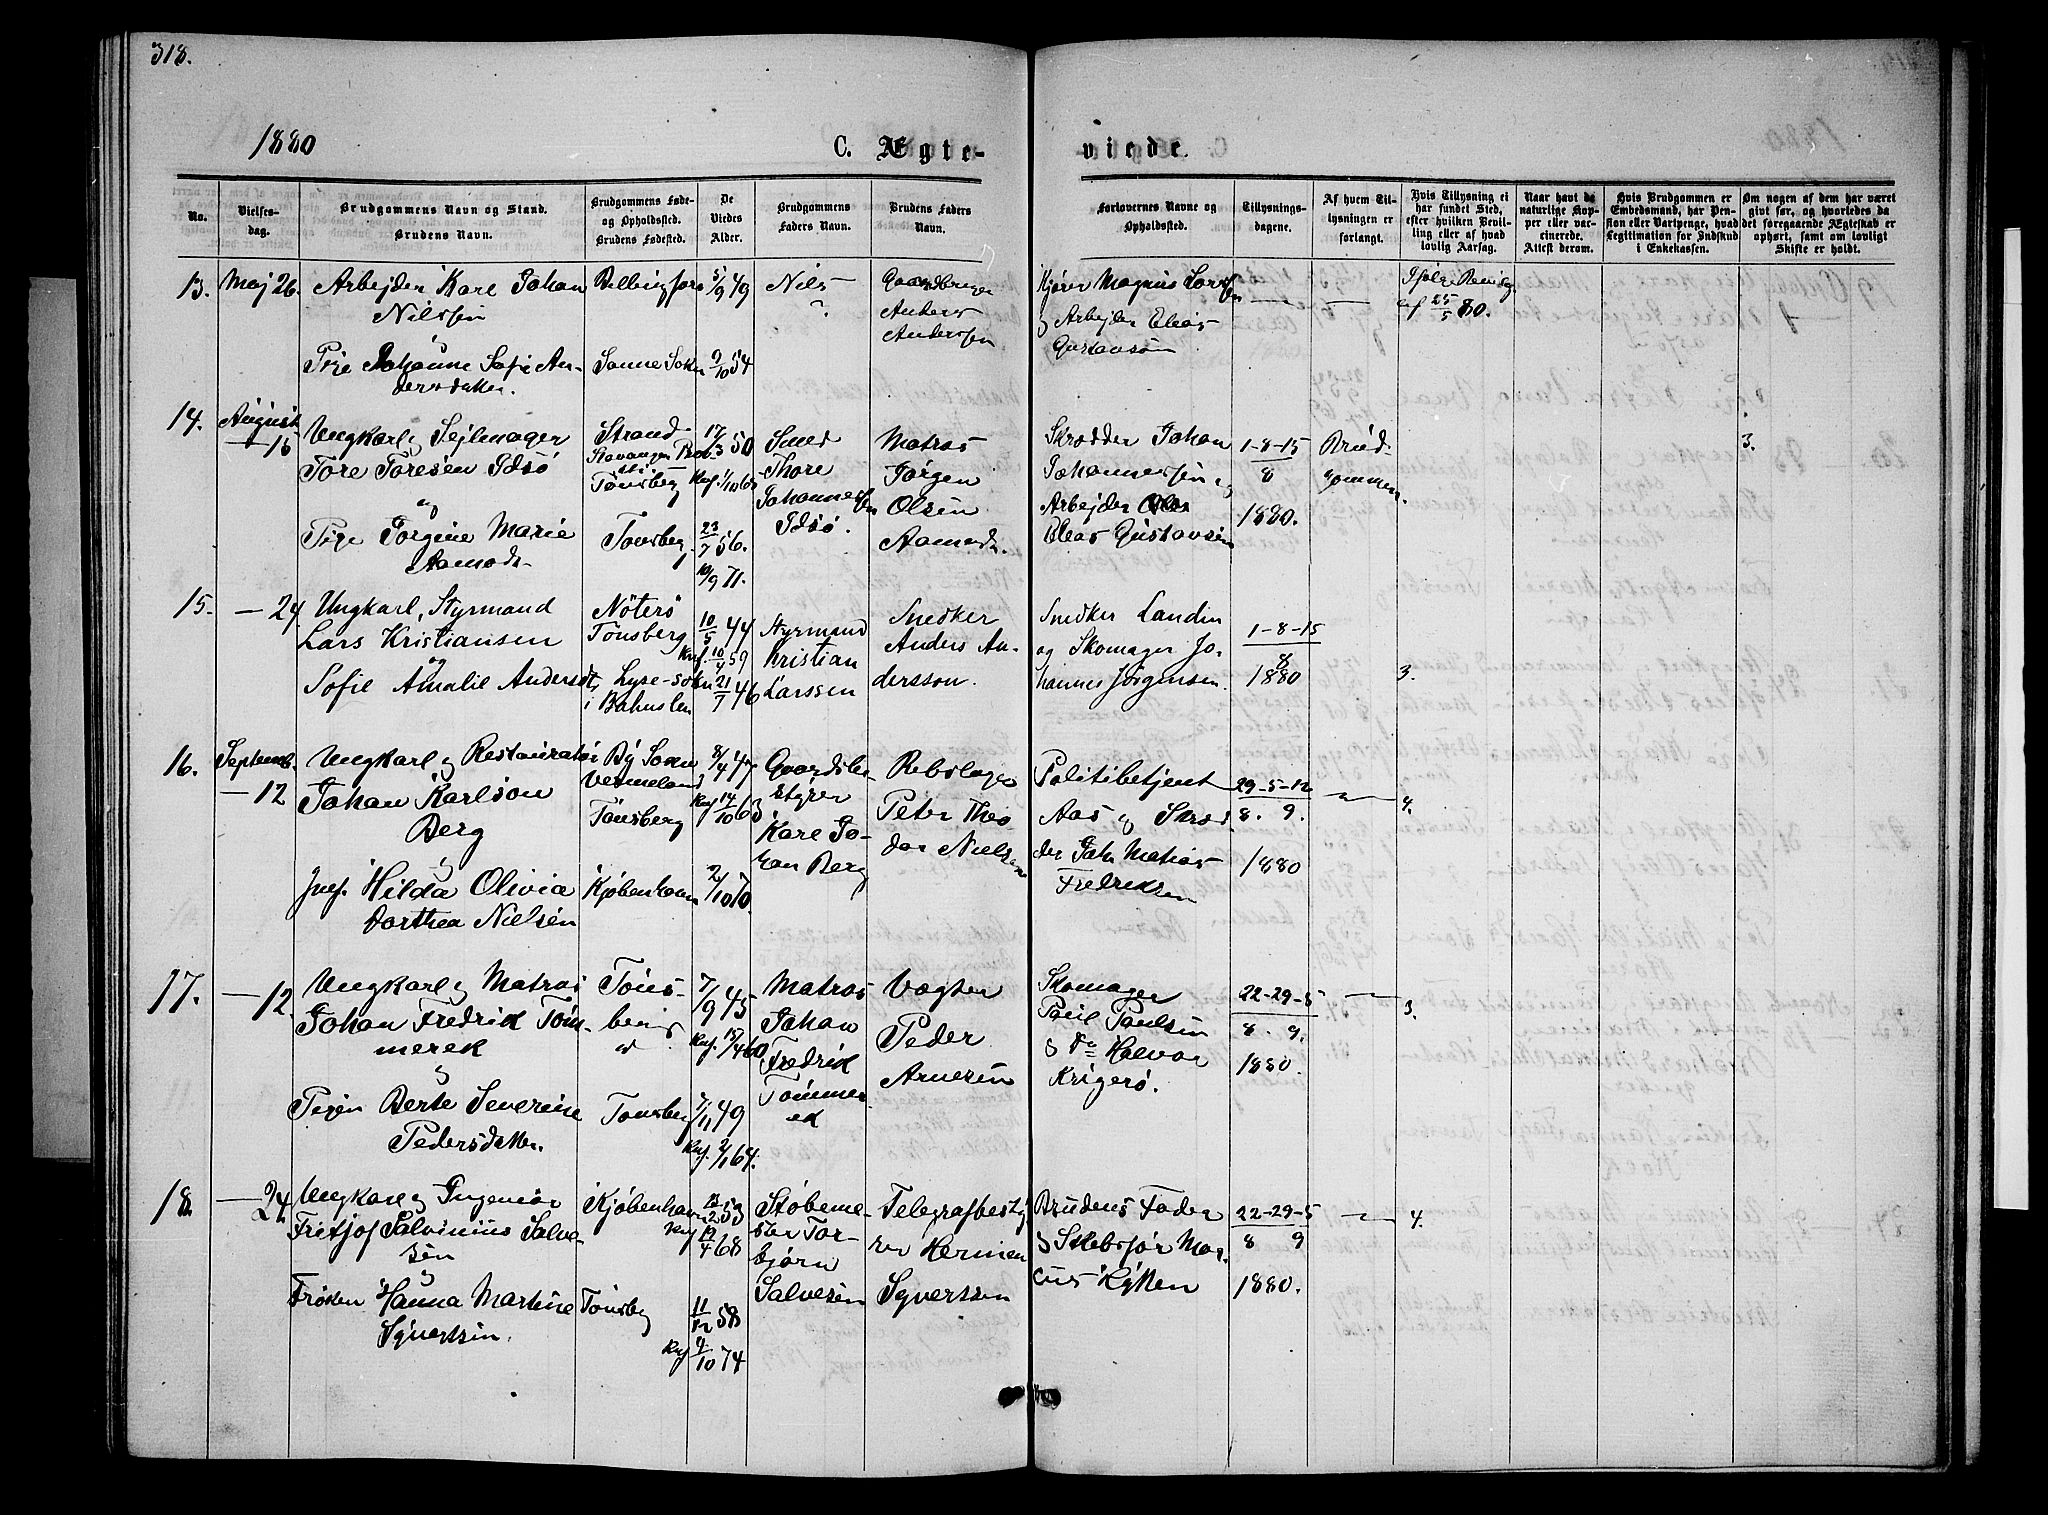 318.
1880
C. Ægte-
viede.
No.
Vielses-
dag.
Brudgommens Navn og Stand.
Brudens Navn.
Brudgommens Føde-
og Opholdssted.
Brudens Fødested.
De
Viedes
Alder.
Brudgommens
Faders Navn.
Brudens Faders
Navn.
Forlovernes Navne og
Opholdssted.
Tillysnings-
dagene.
Af hvem Til-
lysningen er
forlangt.
Hvis Tillysning ei
har fundet Sted,
efter hvilken Bevil-
ling eller af hvad
lovlig Aarsag.
Naar havt de
naturlige Kop-
per eller vac-
cinerede.
Attest derom.
Hvis Brudgommen er
Embedsmand, har Pen-
sion eller Vartpenge, hvad
Legitimation for Indskud
i Enkekassen.
Om nogen af dem har været
givt før, og hvorledes da
det foregaaende Ægteskab er
ophørt, samt om lovligt
Skifte er holdt.
13. Maj 26.
Arbejder Karl Johan
Nilssen
og
Pige Johanne Sofie An-
dersdatter.
Sanne Soken
5/9 49
9/10 54
Nils
?
Gaardbruger
Anders
Anderssen
Kjører Magnus Lars
sen
& Arbejder Elias
Gustavsøn
Ifølge
af 25/5 80.
14. August
— 15
Ungkarl, Sejlmager
Tore Toresen Idsø
og
Pige Jorgine Marie
Aamodt
Strand
Stavanger
Tønsberg
Tønsberg
17/3 50
Knf. 1/10 65
23/7 56.
10/9 71.
Smed
Thore
Johannessen
Idsø.
Matros
Jörgen
Olsen
Aamodt.
Skrædder Johan
Johannessen og
Arbejder
Elias Gustavsen
1-8-15
8
1880.
Brud-
gommen.
3.
15. — 24
Ungkarl, Styrmand
Lars Kristiansen
og
Sofie Amalie Andersdt,
Nöterö
Tönsberg
Lyse-sokn
i Bahuslen
10/5 44
Knf. 10/4 59
21/7 46
Styrmand
Kristian
Larssen
Snedker
Anders An-
dersson.
Snedker Landin
og Skomager Jo-
hannes Jörgensen.
1-8-15
8
1880
3.
16. Septemb.
— 12
Ungkarl, Restauratör
Johan Karlsön
Berg
og
Jnf. Hilda Olivia
Dorthea Nielsen
By Socken
Vermeland
Tönsberg
Kjøbenhavn
8/4 47
Knf 14/10 63
Gaardsbe-
styrer
Karl Jo-
han Berg
Rebslager
Peter Theo
dor Nielsen
Politibetjent
Aas og Skræd
der Joh. Matias
Fredriksen
29-5-12
8. 9.
1880
4.
17. — 12.
Ungkarl, Matros
Johan Fredrik Töm-
merek
og
Pigen Berte Severine
Pedersdatter.
Töns-
berg
Tønsberg
7/9 45
Knf. 15/4 60
7/11 49
Knf. 2/1 64.
Matros
Johan
Fredrik
Tömmer
ek
Vægter
Peder
Arnesen
Skomager
Paul Paulsen
& Do Halvor
Krigerö.
22-29-5
8. 9.
1880.
3.
18. — 24
Ungkarl, Ingeniør
Fritjof Salvinius Salve-
sen
og
Frøken Hanna Martine
Syvertsen.
Kjöbenhavn
Tønsbg
13/2 53
Knf 19/4 68
11/12 58
Knf 4/10 74
Støbeme-
ster Tor-
bjørn
Salvesen
Telegrafbesty
rer Herman
Syvertsen
Brudens Fader
& Skibsför Mar-
cus Lÿtken
22-29-5
8 9
1880.
4.